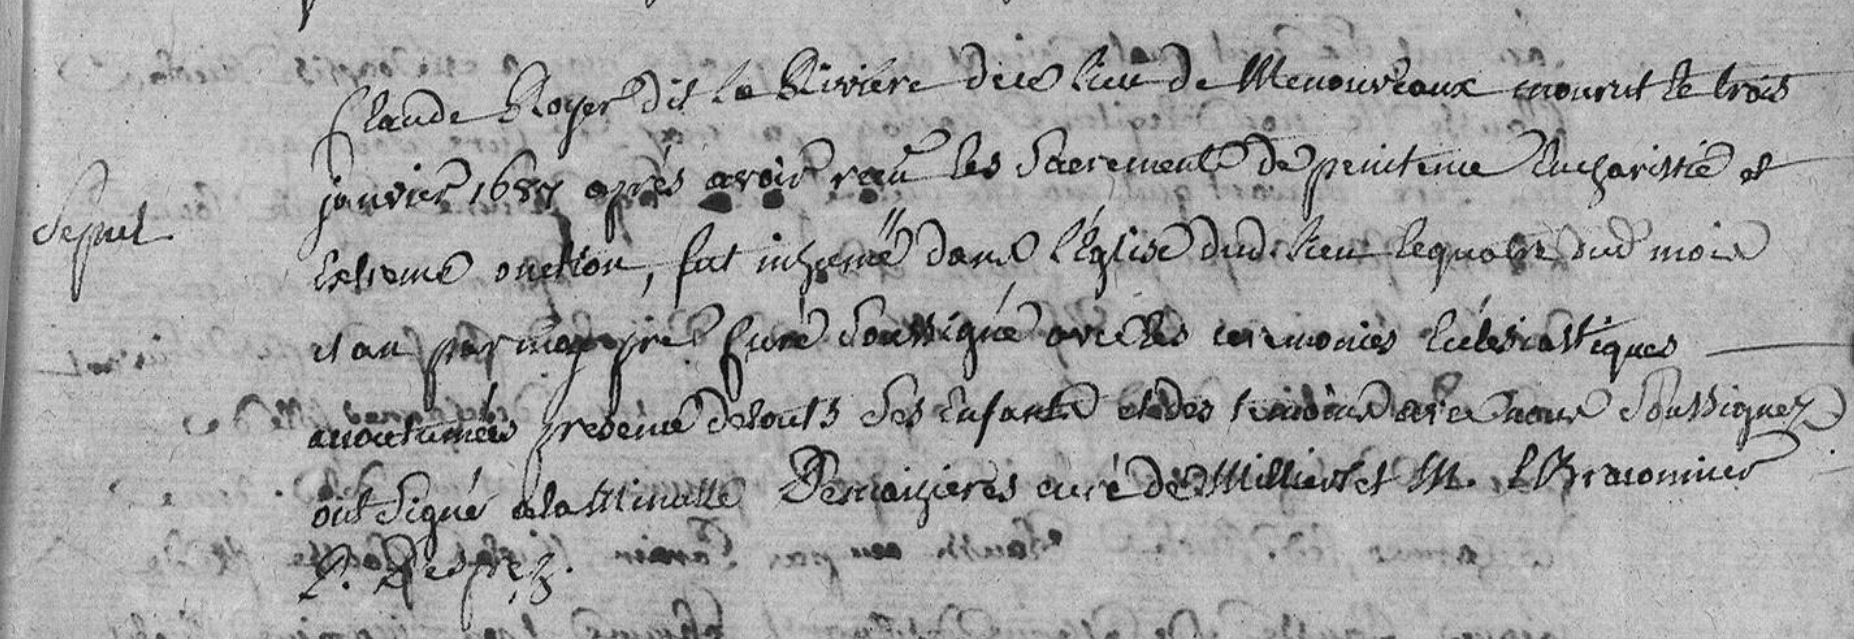 Claude Royer dit la Riviere de ce lieu de Menouveaux mourut le trois
Sepul
janvier 1687 aprés avoir receu les Sacrements de penitence Eucharistie et
Extreme onction, fut inhumé dans l'Eglise dud. lieu le quatre dud mois
et an par moy pre Curé Soussigné avec les ceremonies Ecclesiastiques
accoutumées presence de touts Ses Enfants et des temoins avec nous Soussignez
ont Signé a la Minutte Demaizieres curé de Millieres et M. L Braconnier
P. Desprez.